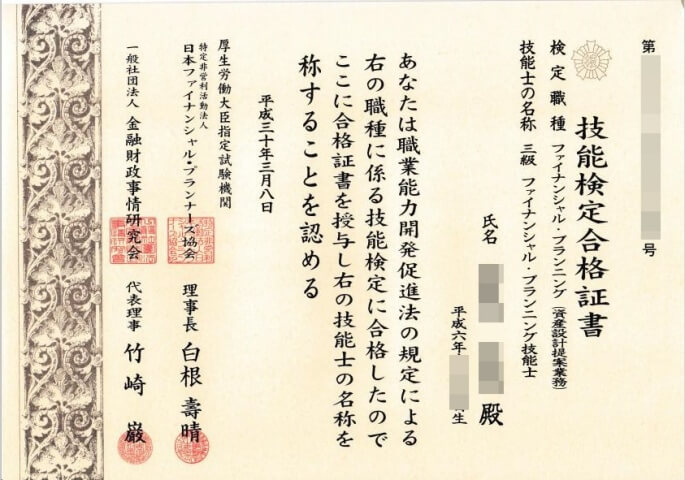 第 号
技能検定合格証書
検定職種 ファイナンシャル・プランニング(資産設計提案業務)
技能士の名称 三級 ファイナンシャル・プランニング技能士
氏名 殿
平成六年 生
あなたは職業能力開発促進法の規定による
右の職種に係る技能検定に合格したので
ここに合格証書を授与し右の技能士の名称を
称することを認める
平成三十年三月八日
厚生労働大臣指定試験機関
特定非営利活動法人
日本ファイナンシャル・プランナーズ協会 理事長 白根壽晴
一般社団法人 金融財政事情研究会 代表理事 竹崎巌